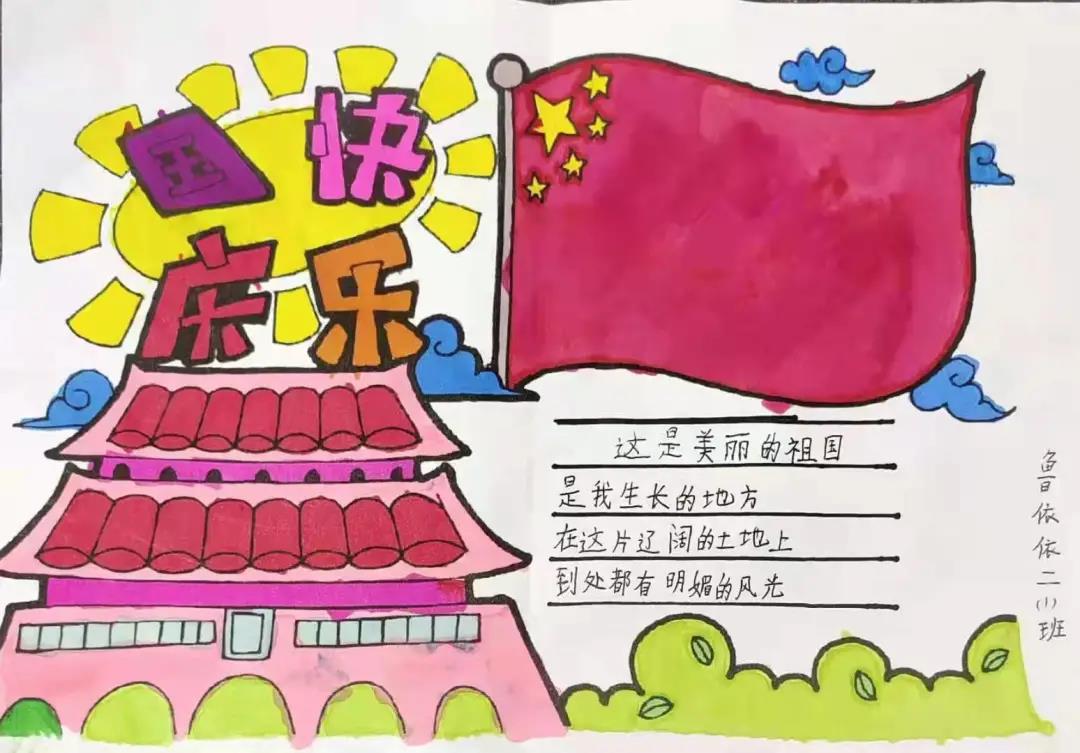 国庆
快乐
这是美丽的祖国
是我生长的地方
在这片辽阔的土地上
到处都有明媚的风光
鲁依依二(1)班